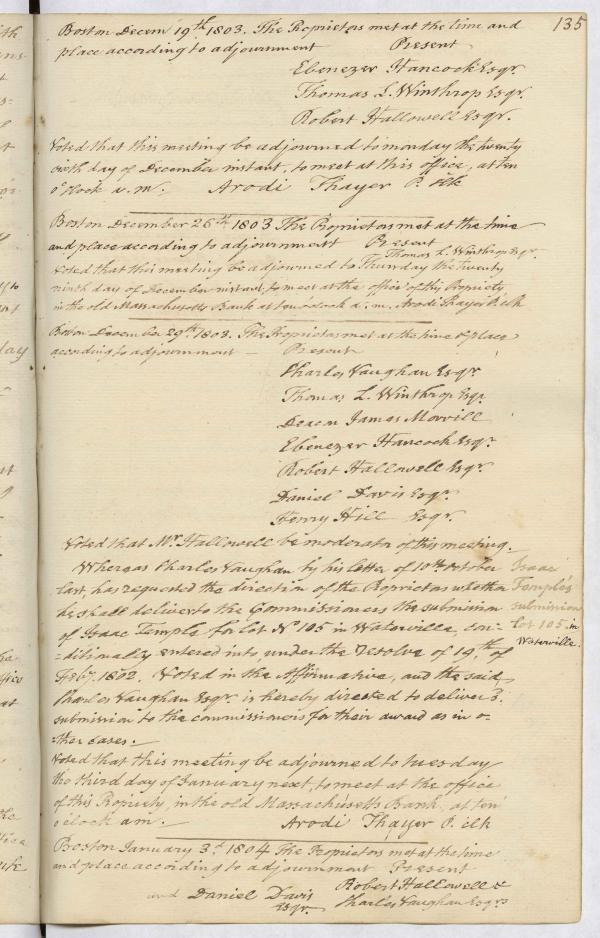 135
Boston Decem.r 19.th 1803. The Proprietors met at the time and
place according to adjournment Present
Ebenezer Hancock Esqr.
Thomas L. Winthrop Esqr.
Robert Hallowell Esqr.
Voted that this meeting be adjourned to monday the twenty
sixth day of December instant, to meet at this office, at ten
o'Clock a.m. Arodi Thayer P. Clk
Boston December 26.th 1803 The Proprietors met at the time
and place according to adjournment Present
Thomas L. Winthrop Esqr.
Voted that this meeting be adjourned to Thursday the twenty
ninth day of December instant, to meet at the office of this Propriety
in the old Massachusetts Bank at ten o'clock a.m. Arodi Thayer P. Clk
Boston December 29.th 1803. The Proprietors met at the time & place
according to adjournment — Present
Charles Vaughan Esqr
Thomas L. Winthrop Esqr
Deacon James Morrill
Ebenezer Hancock Esqr.
Robert Hallowell Esqr.
Daniel Davis Esqr.
Henry Hill Esqr.
Voted that Mr. Hallowell be moderator of this meeting.
Whereas Charles Vaughan by his letter of 10th October
last, has requested the direction of the Proprietors whether
he shall deliver to the Commissioners the submission
of Isaac Temple for lot No 105 in Waterville, con-
-ditionally entered into under the resolve of 19.th of
Feby. 1802. Voted in the Affirmative, and the said
Charles Vaughan Esqr. is hereby directed to deliver sd.
submission to the commissioners for their award as in o-
-ther cases.—
Isaac
Temple's
submission
lot 105 in
Waterville.
Voted that this meeting be adjourned to tuesday
the third day of January next, to meet at the office
of this Propriety, in the old Massachusetts Bank, at ten
o'clock am. — Arodi Thayer P. clk
Boston January 3.d 1804 The Proprietors met at the time
and place according to adjournment Present
Robert Hallowell &
and Daniel Davis Charles Vaughan Esqrs
Esqr.